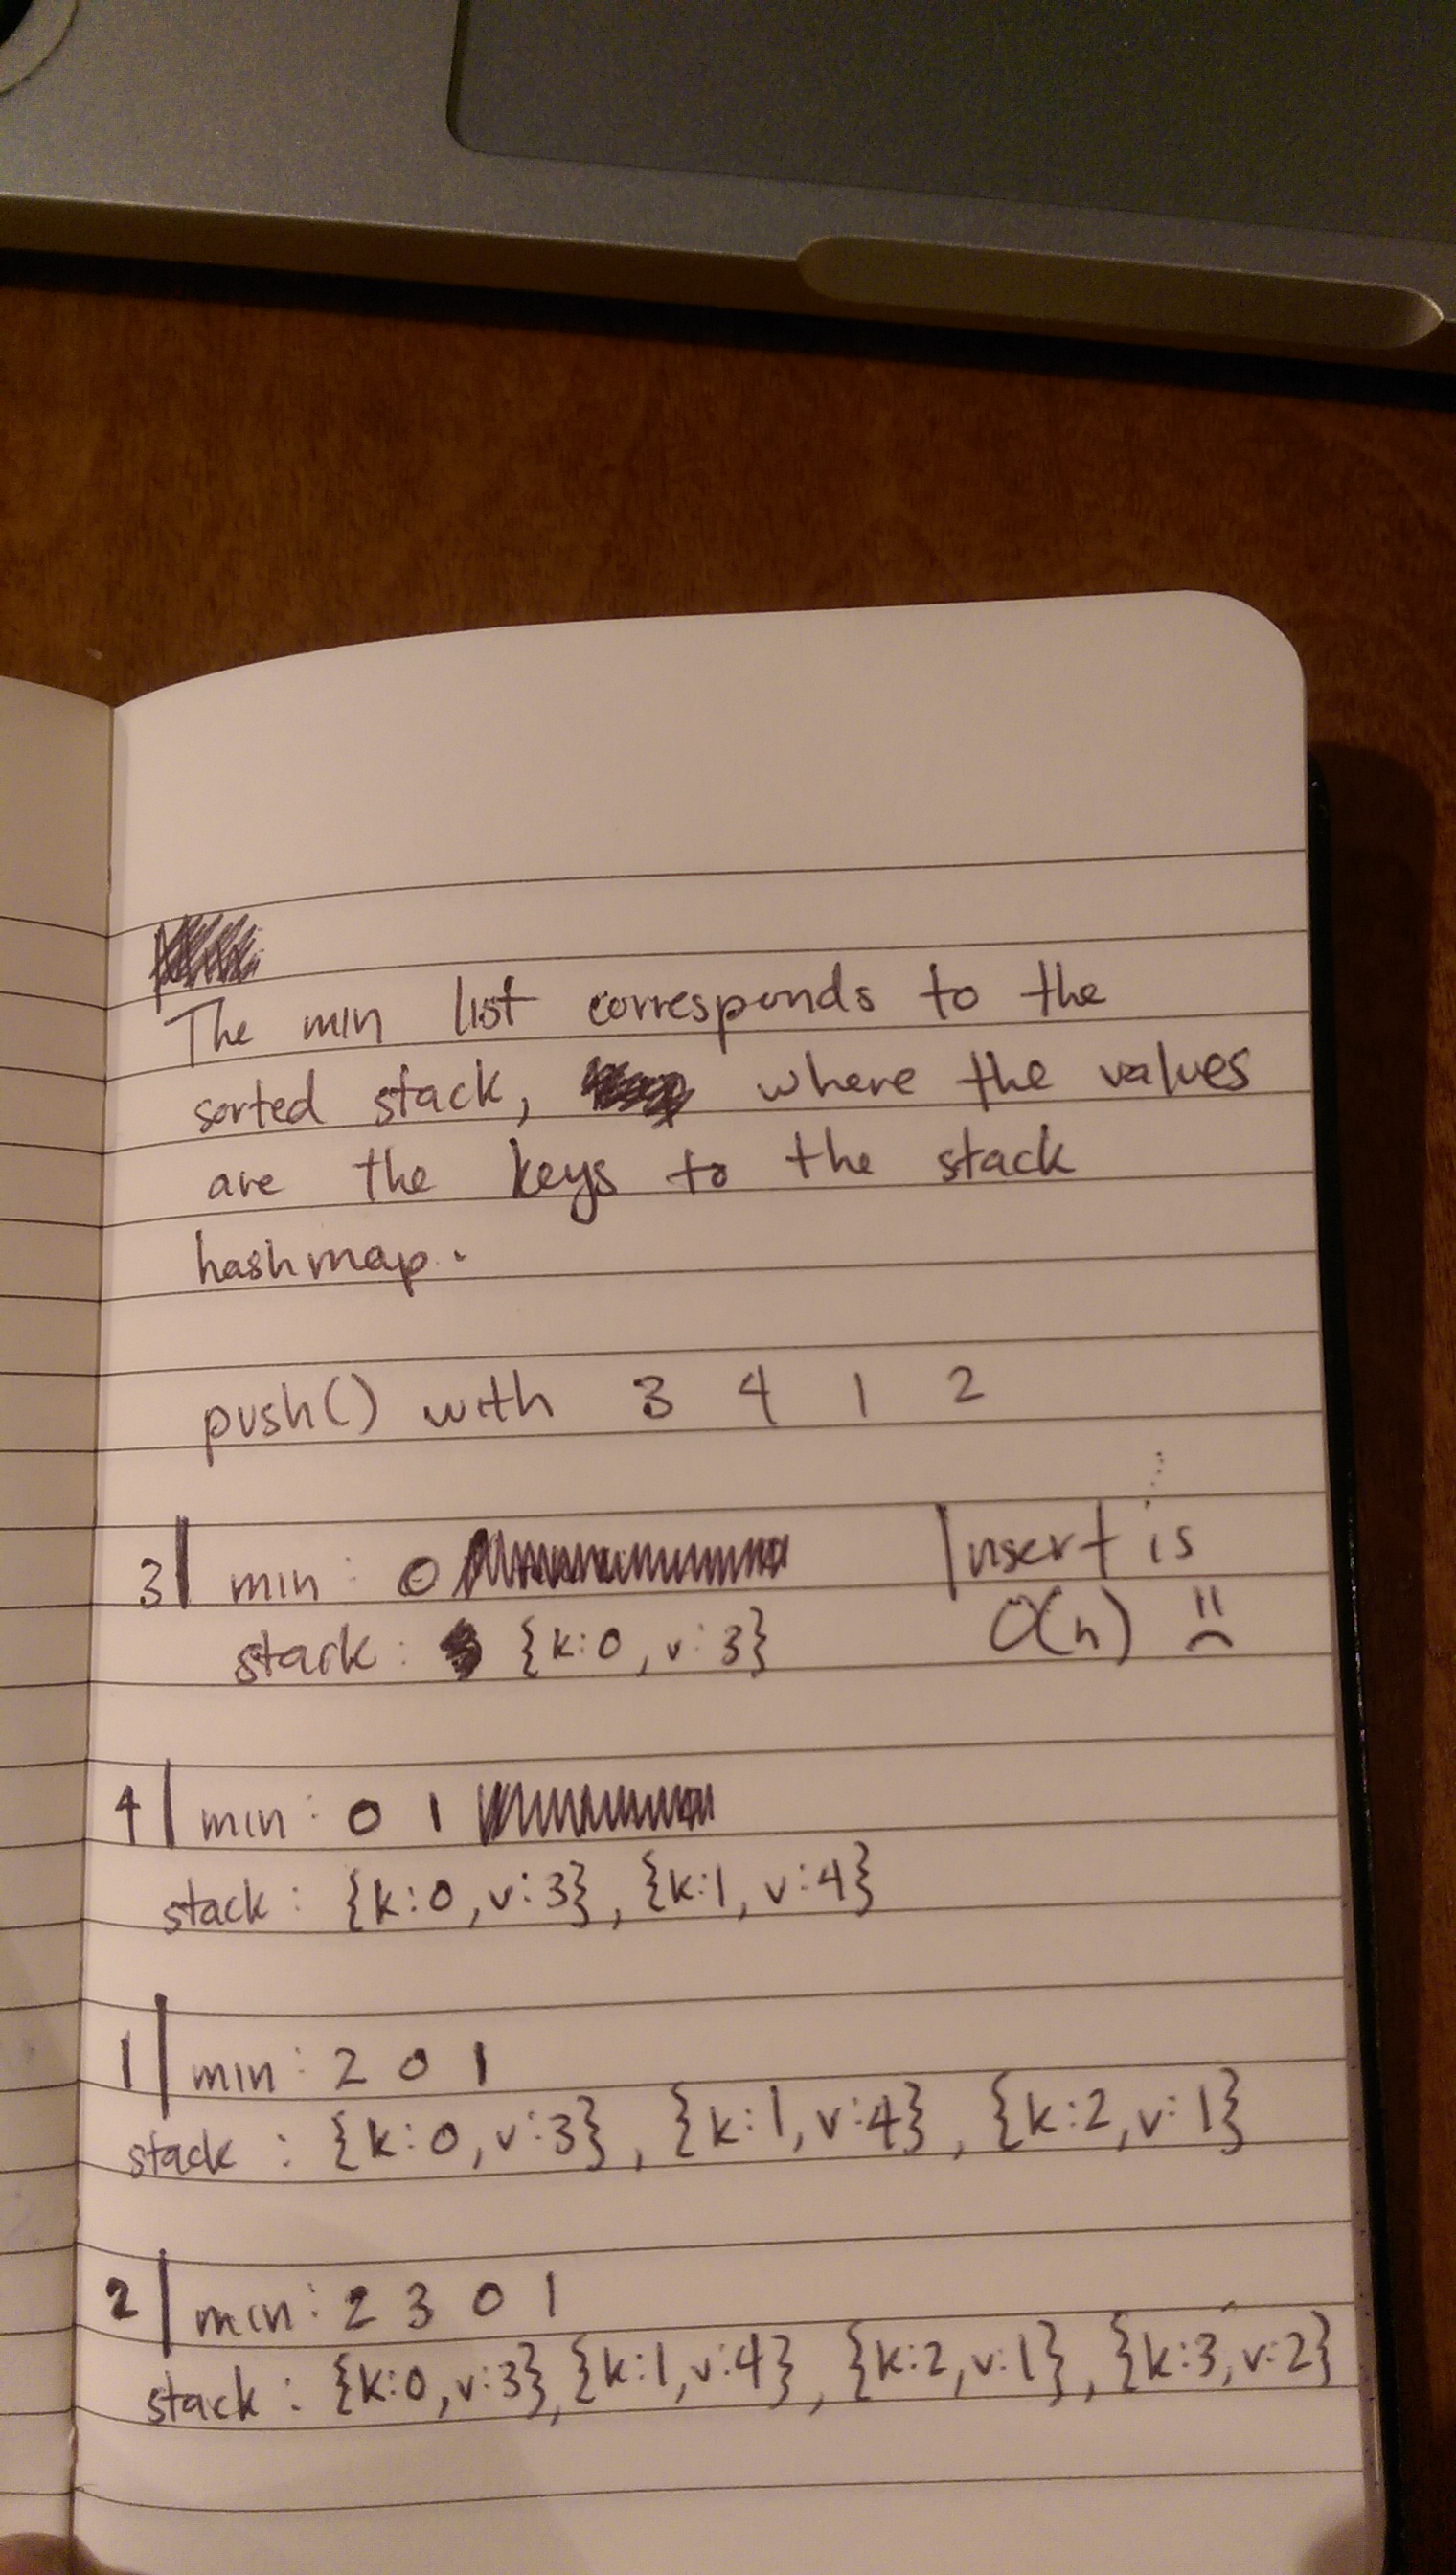 The min list corresponds to the
sorted stack, where the values
are the keys to the stack
hashmap.
push() with 3 4 1 2
3| min : 0
stack : {k:0, v:3}
Insert is
O(n) :(
4| min : 0 1
stack : {k:0, v:3}, {k:1, v:4}
1| min : 2 0 1
stack : {k:0, v:3}, {k:1, v:4}, {k:2, v:1}
2| min : 2 3 0 1
stack : {k:0, v:3}, {k:1, v:4}, {k:2, v:1}, {k:3, v:2}